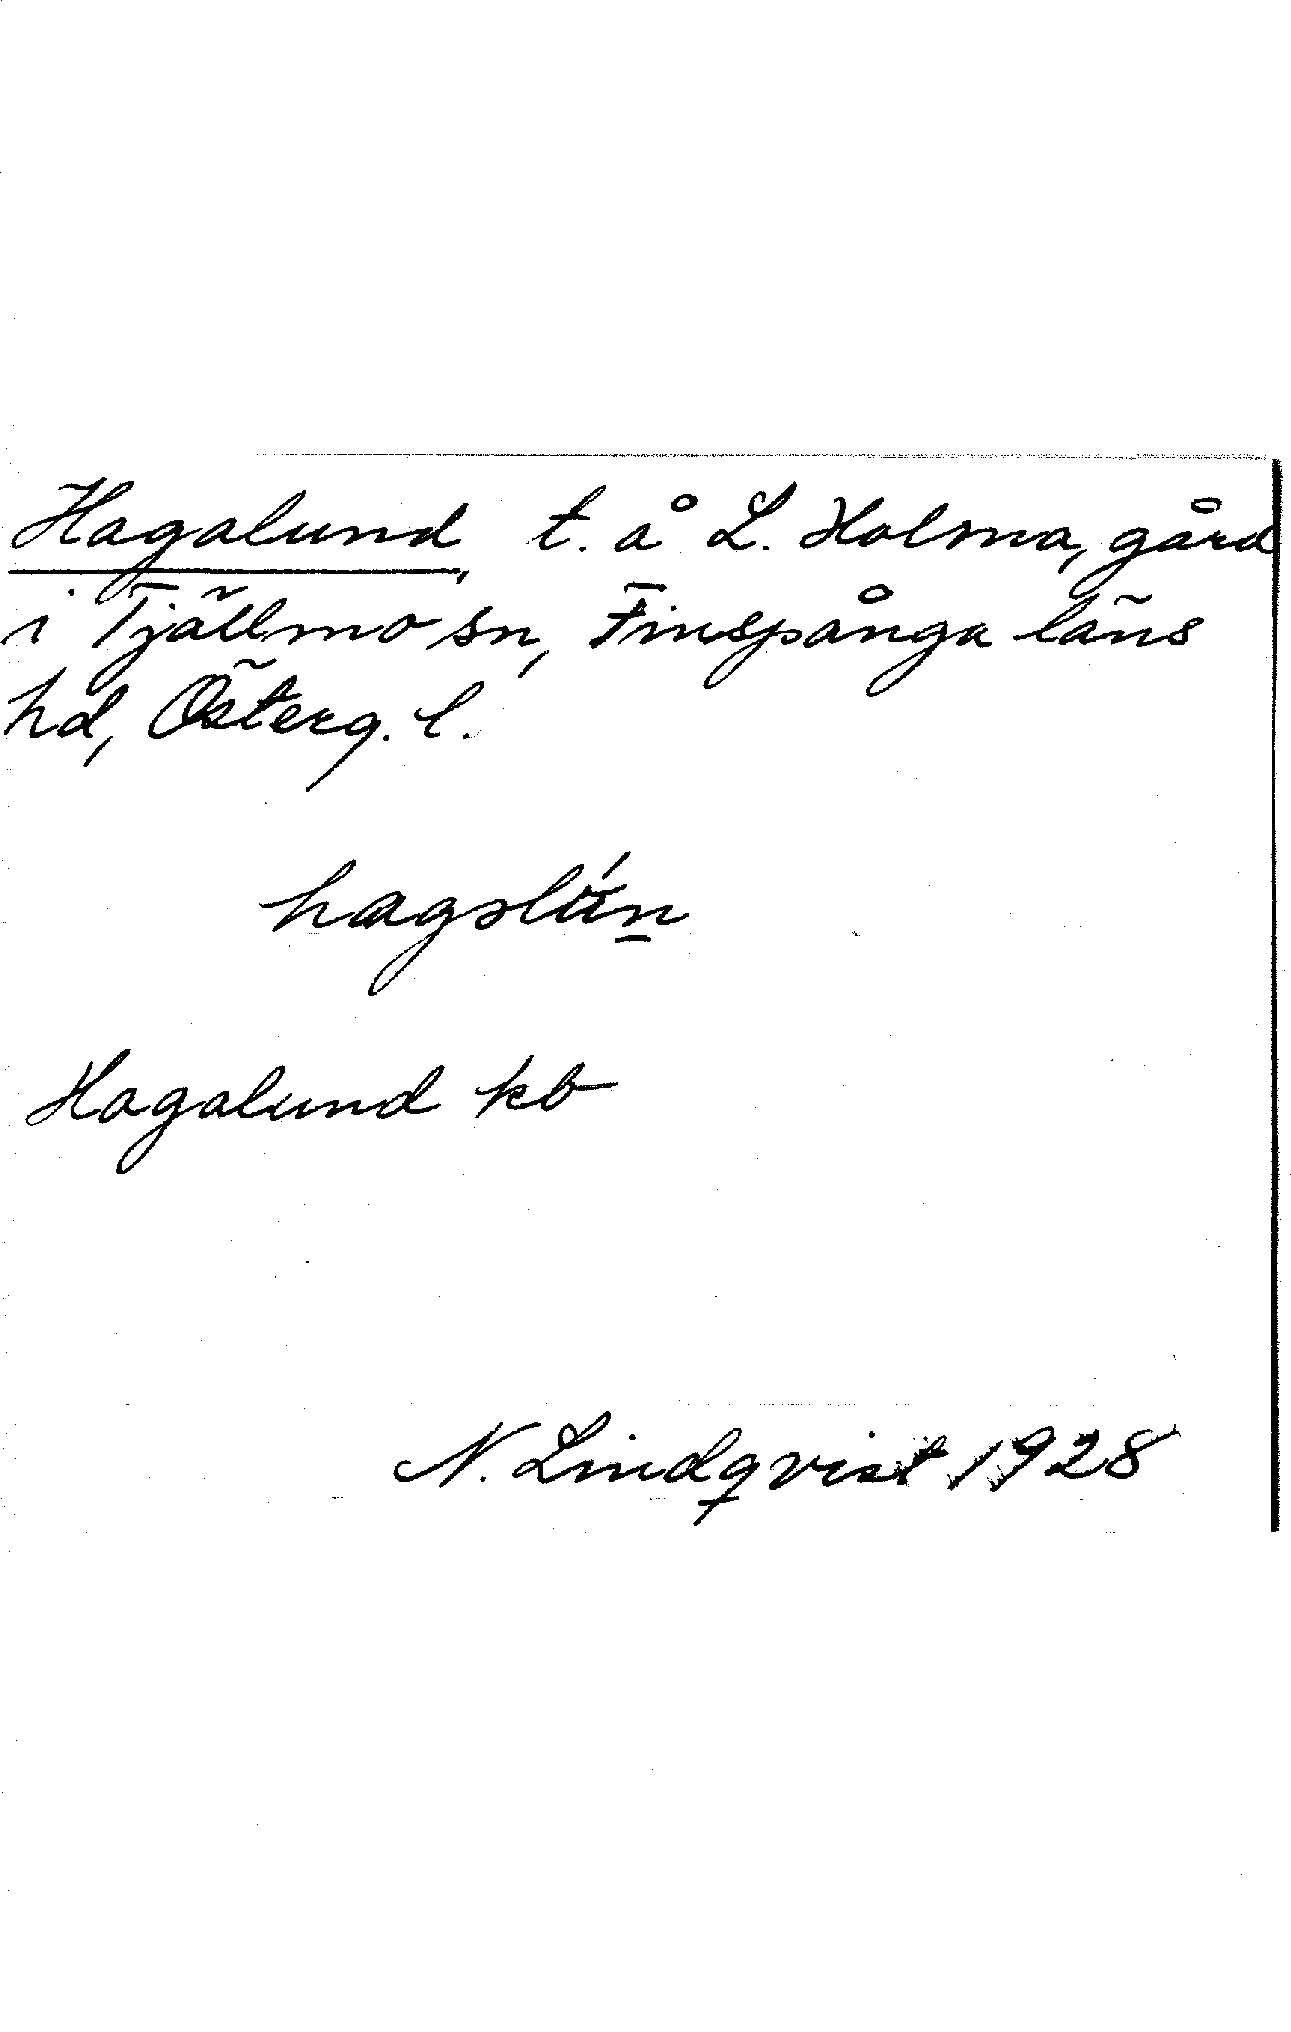 Hagalund, t. å L. Holma, gård
i Tjällmo sn, Finspånga läns
hd, Österg. l.
hagəlún̲
Hagalund kb
N. Lindqvist 1928